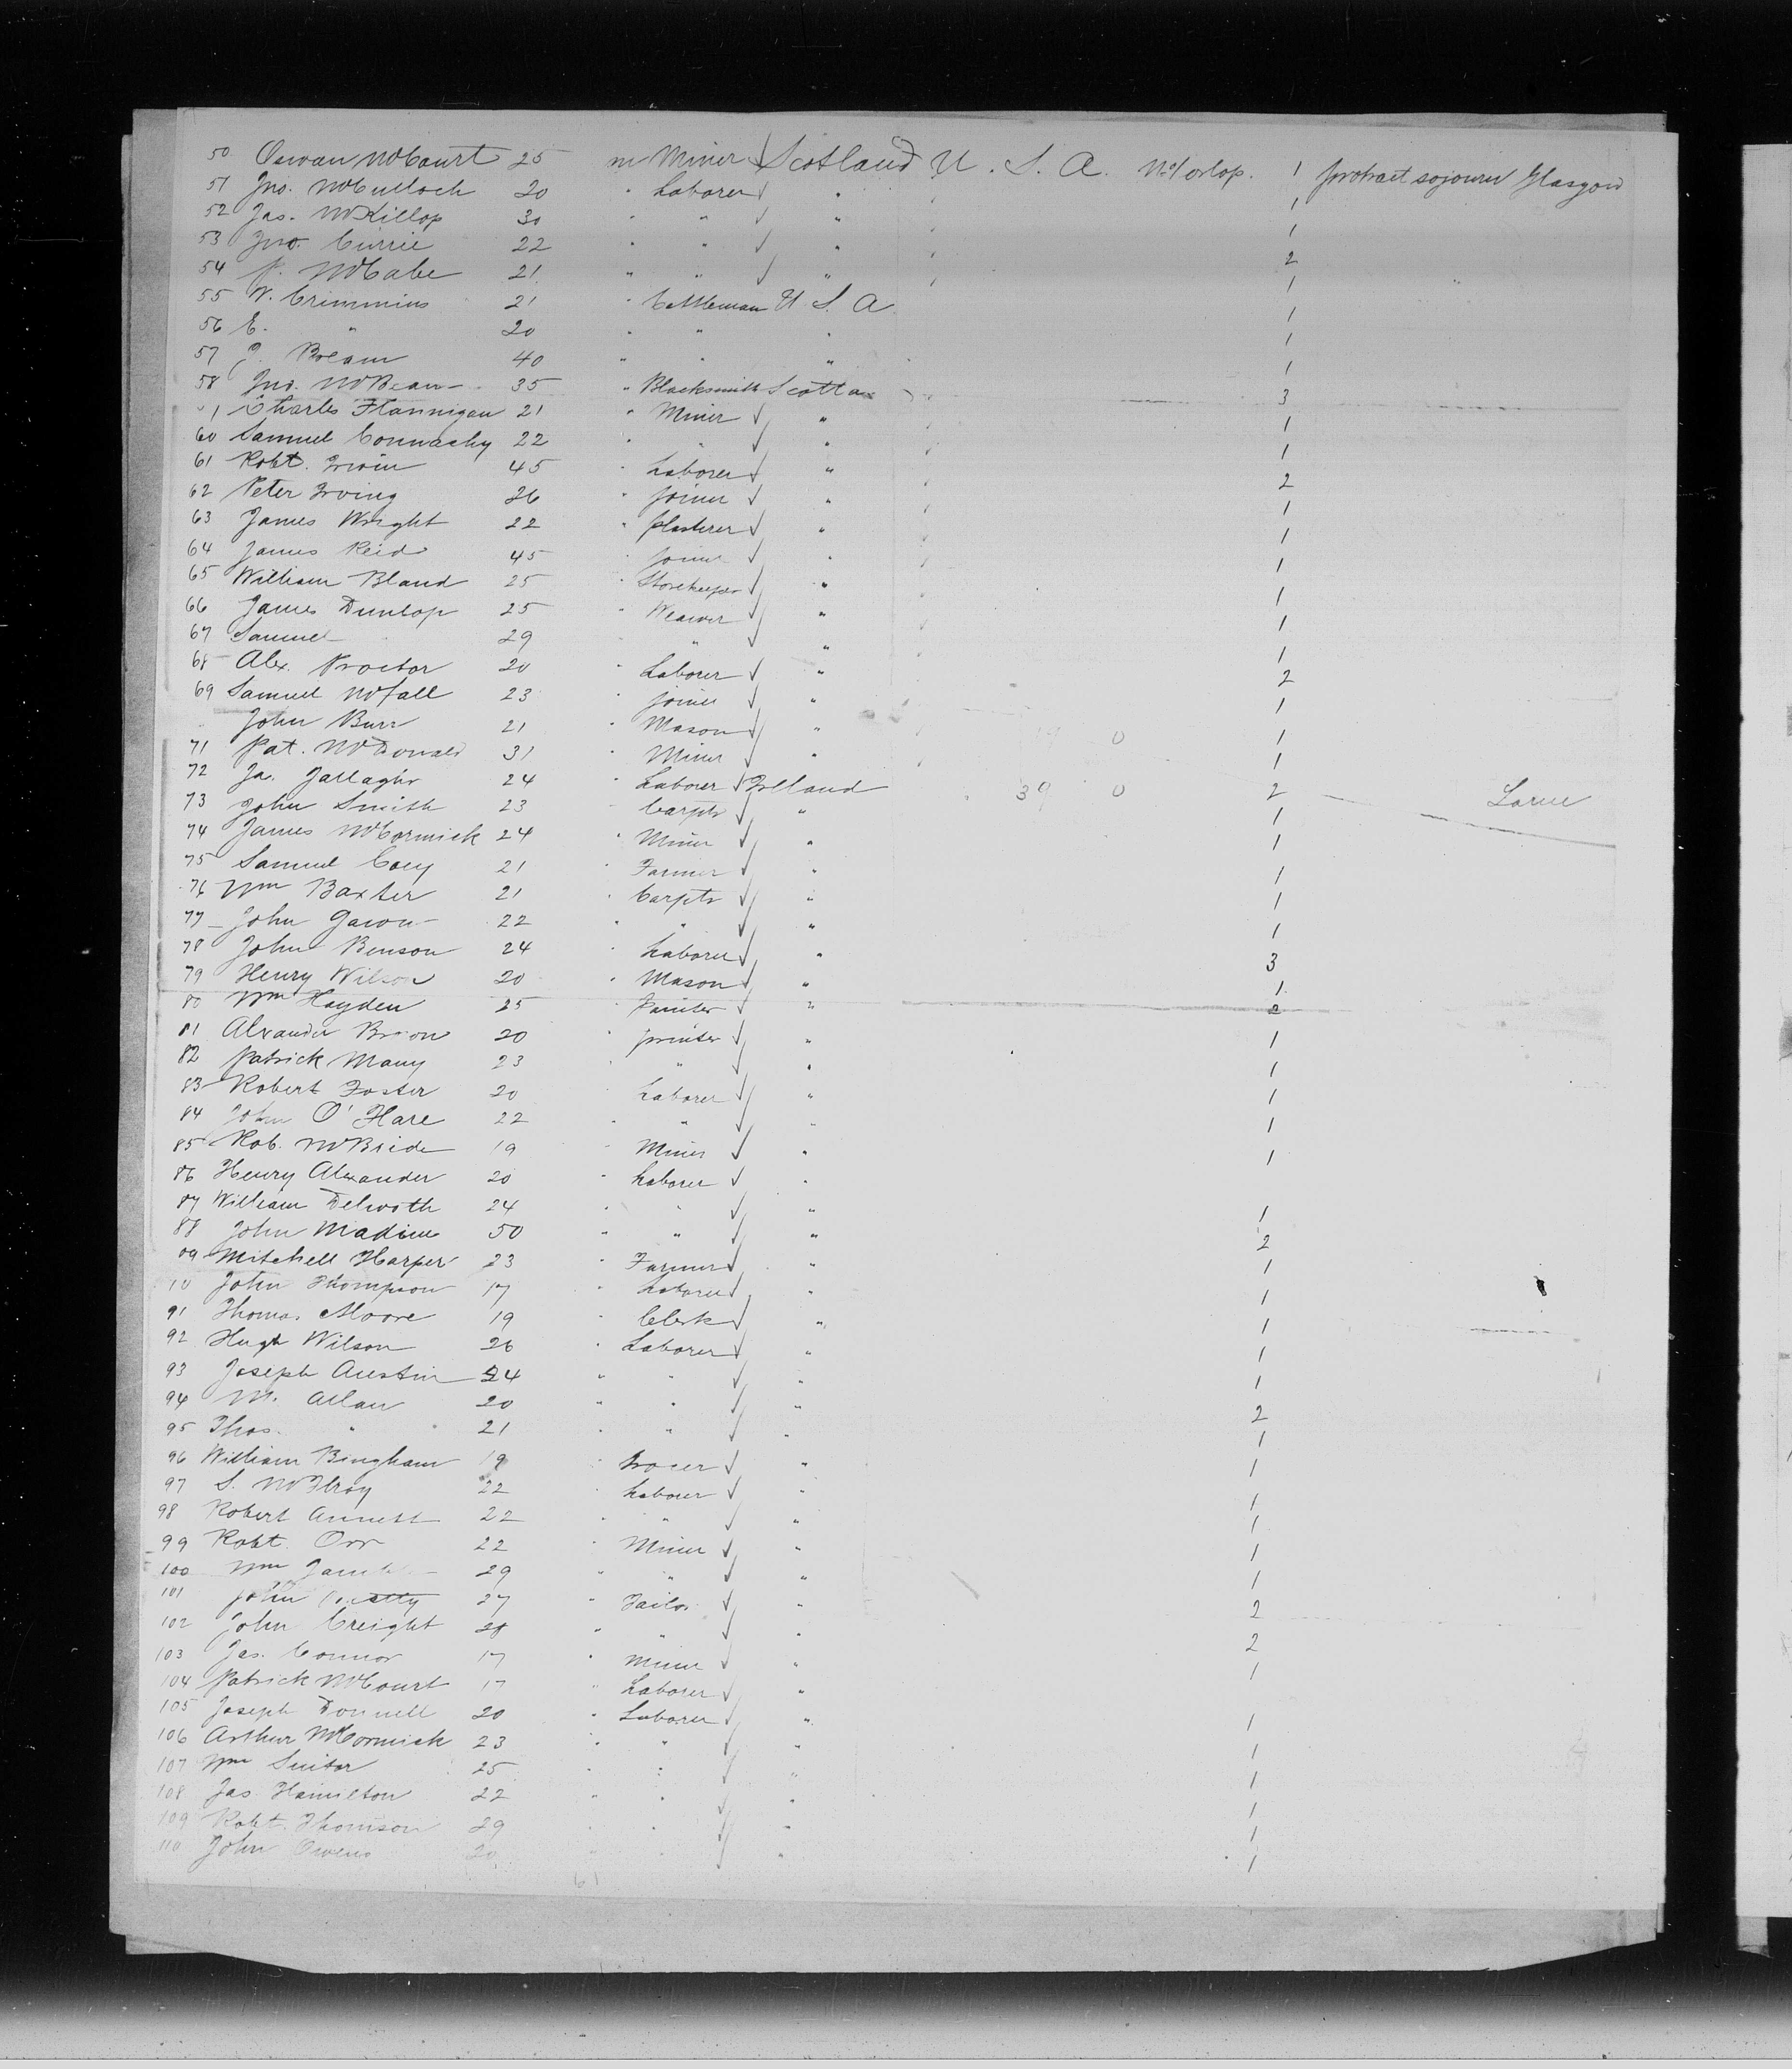 50 Oewan McCourt 25 m Miner Scotland U. S. A. N°1 orlop. 1 protract sojourn Glasgow
51 Jno. McCulloch 20 " Laborer " 1
52 Jas. McKillop 30 " " " 1
53 Jno. Currie 22 " " " 2
54 P. McCabe 21 " " " 1
55 W. Crimmins 21 " Cattleman U. S. A 1
56 E. " 20 " " " 1
57 J. Beam 40 " " " 1
58 Jno. McBean 35 " Blacksmith Scotlan 3
Charles Flannigan 21 " Miner " 1
60 Samuel Connachy 22 " " " 1
61 Robt. Irwin 45 " Laborer " 2
62 Peter Irving 26 " Joiner " 1
63 James Wright 22 " plasterer " 1
64 James Reid 45 " Joiner " 1
65 William Bland 25 " Storekeeper " 1
66 James Dunlop 25 " Weaver " 1
67 Samuel 29 " " 1
68 Alex. Proctor 20 " Laborer " 2
69 Samuel McFall 23 " joiner " 1
John Burr 21 " Mason " 19 0 1
71 Pat. McDonald 31 " Miner " 1
72 Ja. Gallagher 24 " Laborer Irelland 39 0 2 Larne
73 John Smith 23 " Carptr " 1
74 James McCormick 24 " Miner " 1
75 Samuel Coey 21 " Farmer " 1
76 Wm Baxter 21 " Carptr " 1
77 John Gawn 22 " " " 1
78 John Benson 24 " Laborer " 3
79 Henry Wilson 20 " Mason " 1
80 Wm Hayden 25 " Painter " 2
81 Alxander Brown 20 " printer " 1
82 Patrick Many 23 " " " 1
83 Robert Foster 20 " Laborer " 1
84 John O'Hare 22 " " " 1
85 Rob. McBride 19 " Miner " 1
86 Henry Alexander 20 " Laborer "
87 William Delwoth 24 " " " 1
88 John Madine 50 " " " 2
89 Mitchell Harper 23 " Farmer " 1
John Thompson 17 " Laborer " 1
91 Thomas Moore 19 " Clerk " 1
92 Hugh Wilson 26 " Laborer " 1
93 Joseph Austin 24 " " " 1
94 M. Allan 20 " " " 2
95 Thos. " 21 " " " 1
96 William Bingham 19 " Grocer " 1
97 S. McIlroy 22 " Laborer " 1
98 Robert Annett 22 " " " 1
99 Robt. Orr 22 " Miner " 1
100 Wm 29 " " " 1
101 John 27 " Tailor " 2
102 John Creight 28 " " " 2
103 Jas. Connor 17 " Miner " 1
104 Patrick McCourt 17 " Laborer "
105 Joseph Donnell 20 " Laborer " 1
106 Arthur McCormick 23 " " " 1
107 Wm Suitor 25 " " " 1
108 Jas Hamilton 22 " " " 1
109 Robt. Thomson 29 " " " 1
110 John Owens 20 " " " 1
61